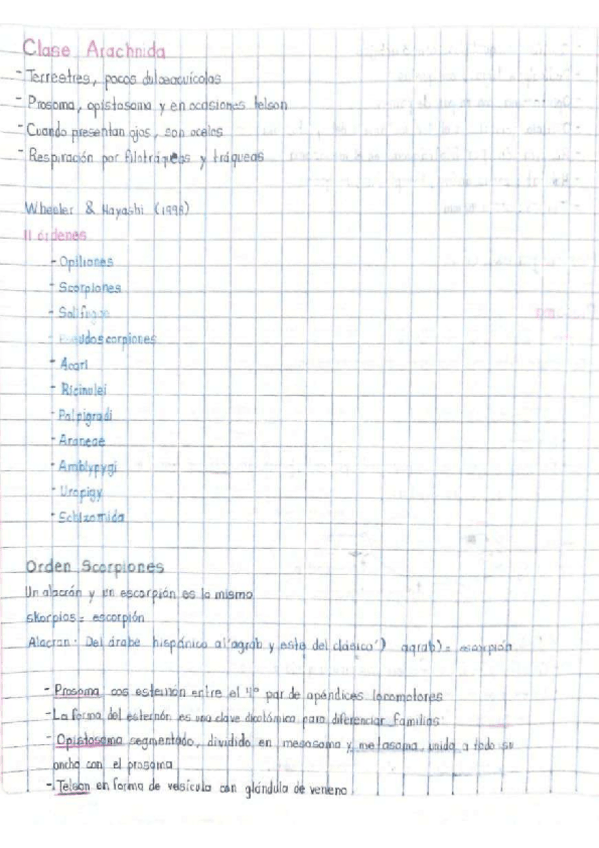 Clase Arachnida
- Terrestres, pocos dulceacuícolas
- Prosoma, opistosoma y en ocasiones telson
- Cuando presentan ojos, son ocelos
- Respiración por filotráqueas y tráqueas
Wheeler & Hayashi (1998)
11 órdenes
- Opiliones
- Scorpiones
- Solífugae
- Pseudoscorpiones
- Acari
- Ricinulei
- Palpigradi
- Araneae
- Amblypygi
- Uropigy
- Schizomida
Orden Scorpiones
Un alacrán y un escorpión es lo mismo
Skorpios = escorpión
Alacran: Del árabe hispánico al'aqráb y este del clásico ') aqrab) = escorpión
- Prosoma cos esternón entre el 4° par de apéndices locomotores
- La forma del esternón es una clave dicotómica para diferenciar familias
- Opistosoma segmentado, dividido en mesosoma y metasoma, unido a todo su
ancho con el prosoma
- Telson en forma de vesícula con glándula de veneno